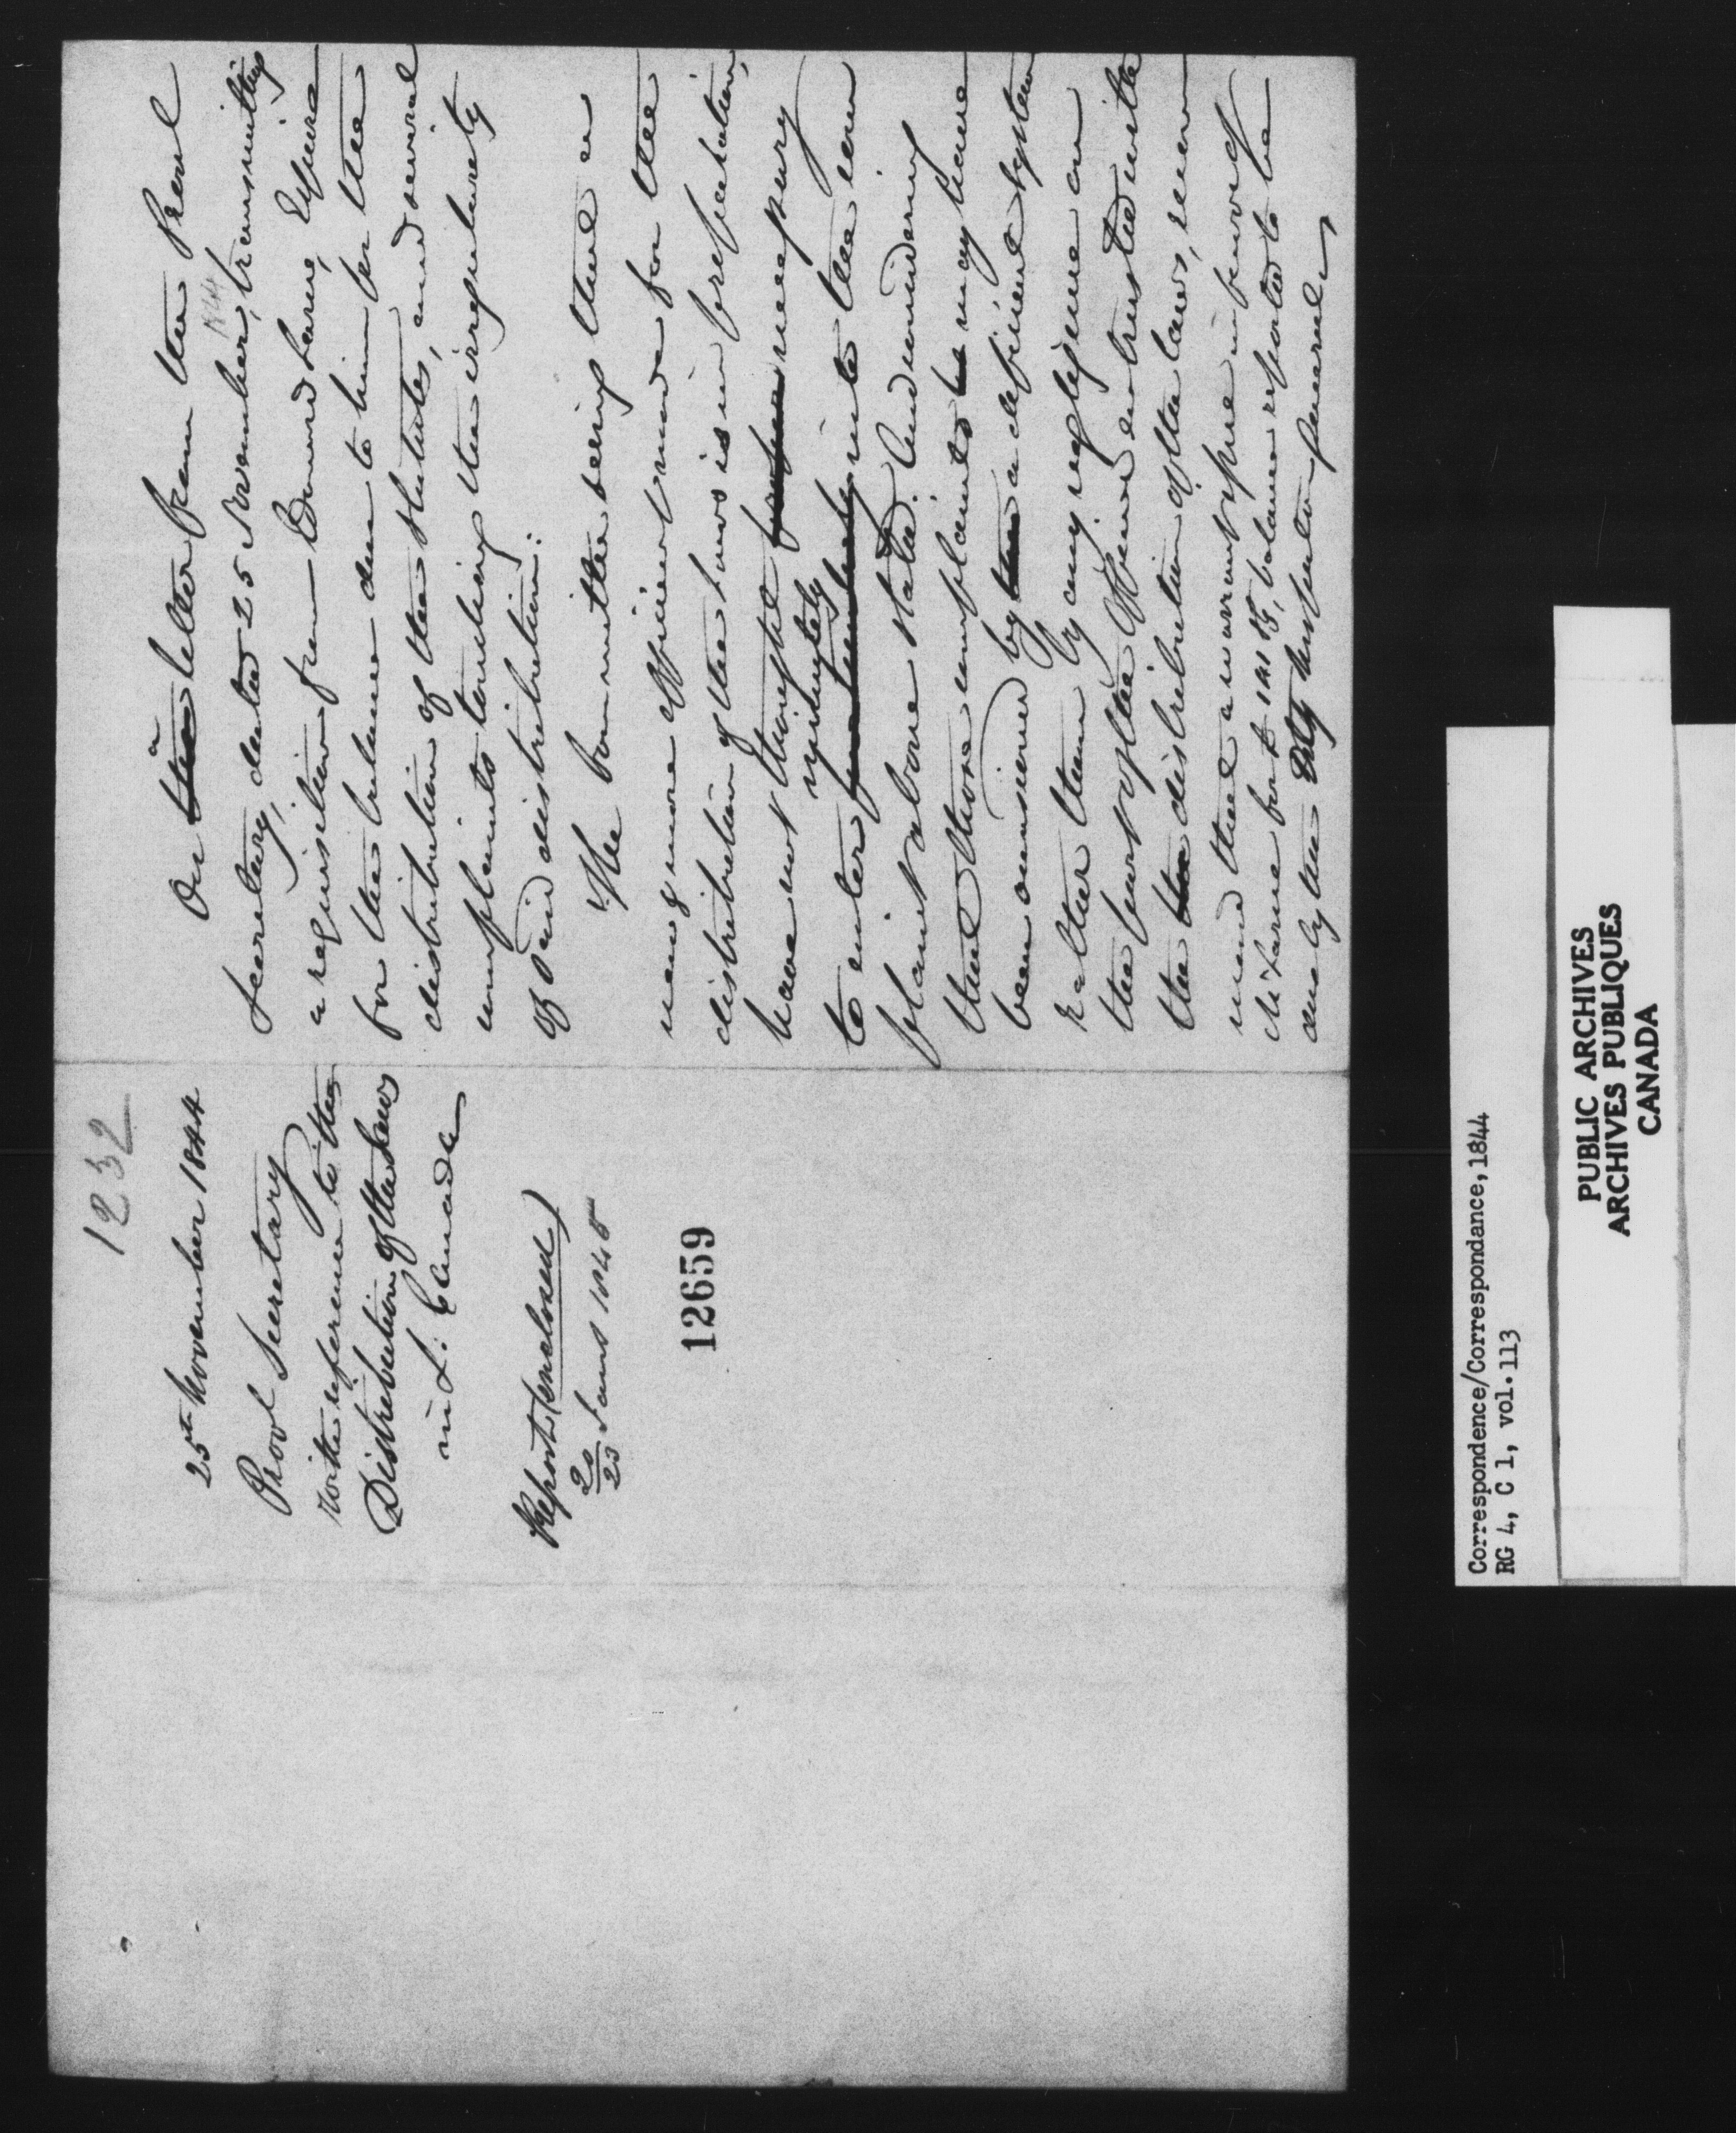 1232
25th November 1844
Provl Secretary
with reference to the
Distribution of the Laws
in L: Canada
Report (enclosed)
20/23 Jany 1845
12659
On the a letter from the Provl
Secretary, dated 25 November, 1844 transmitting
a requisition from Edward Esquire
for the balance due to him for the
distribution of the Statutes, and several
complaints touching the irregularity
of said distribution:
The Committee seeing that a
new & more efficient mode for the
distribution of the Laws is in preparation,
have not thought further necessary
to enter minutely into the com
plaint above stated. And considering
that those complaints be may have
been occasioned by the a deficient system
rather than by any negligence on
the part of the Officer entrusted with
the the distribution of the laws, recom
mend that a warrant issue in favor of
for £ balance reported to be
due by the Inspector general
Correspondence/Correspondance, 1844
RG 4, C 1, vol. 113
PUBLIC ARCHIVES
ARCHIVES PUBLIQUES
CANADA